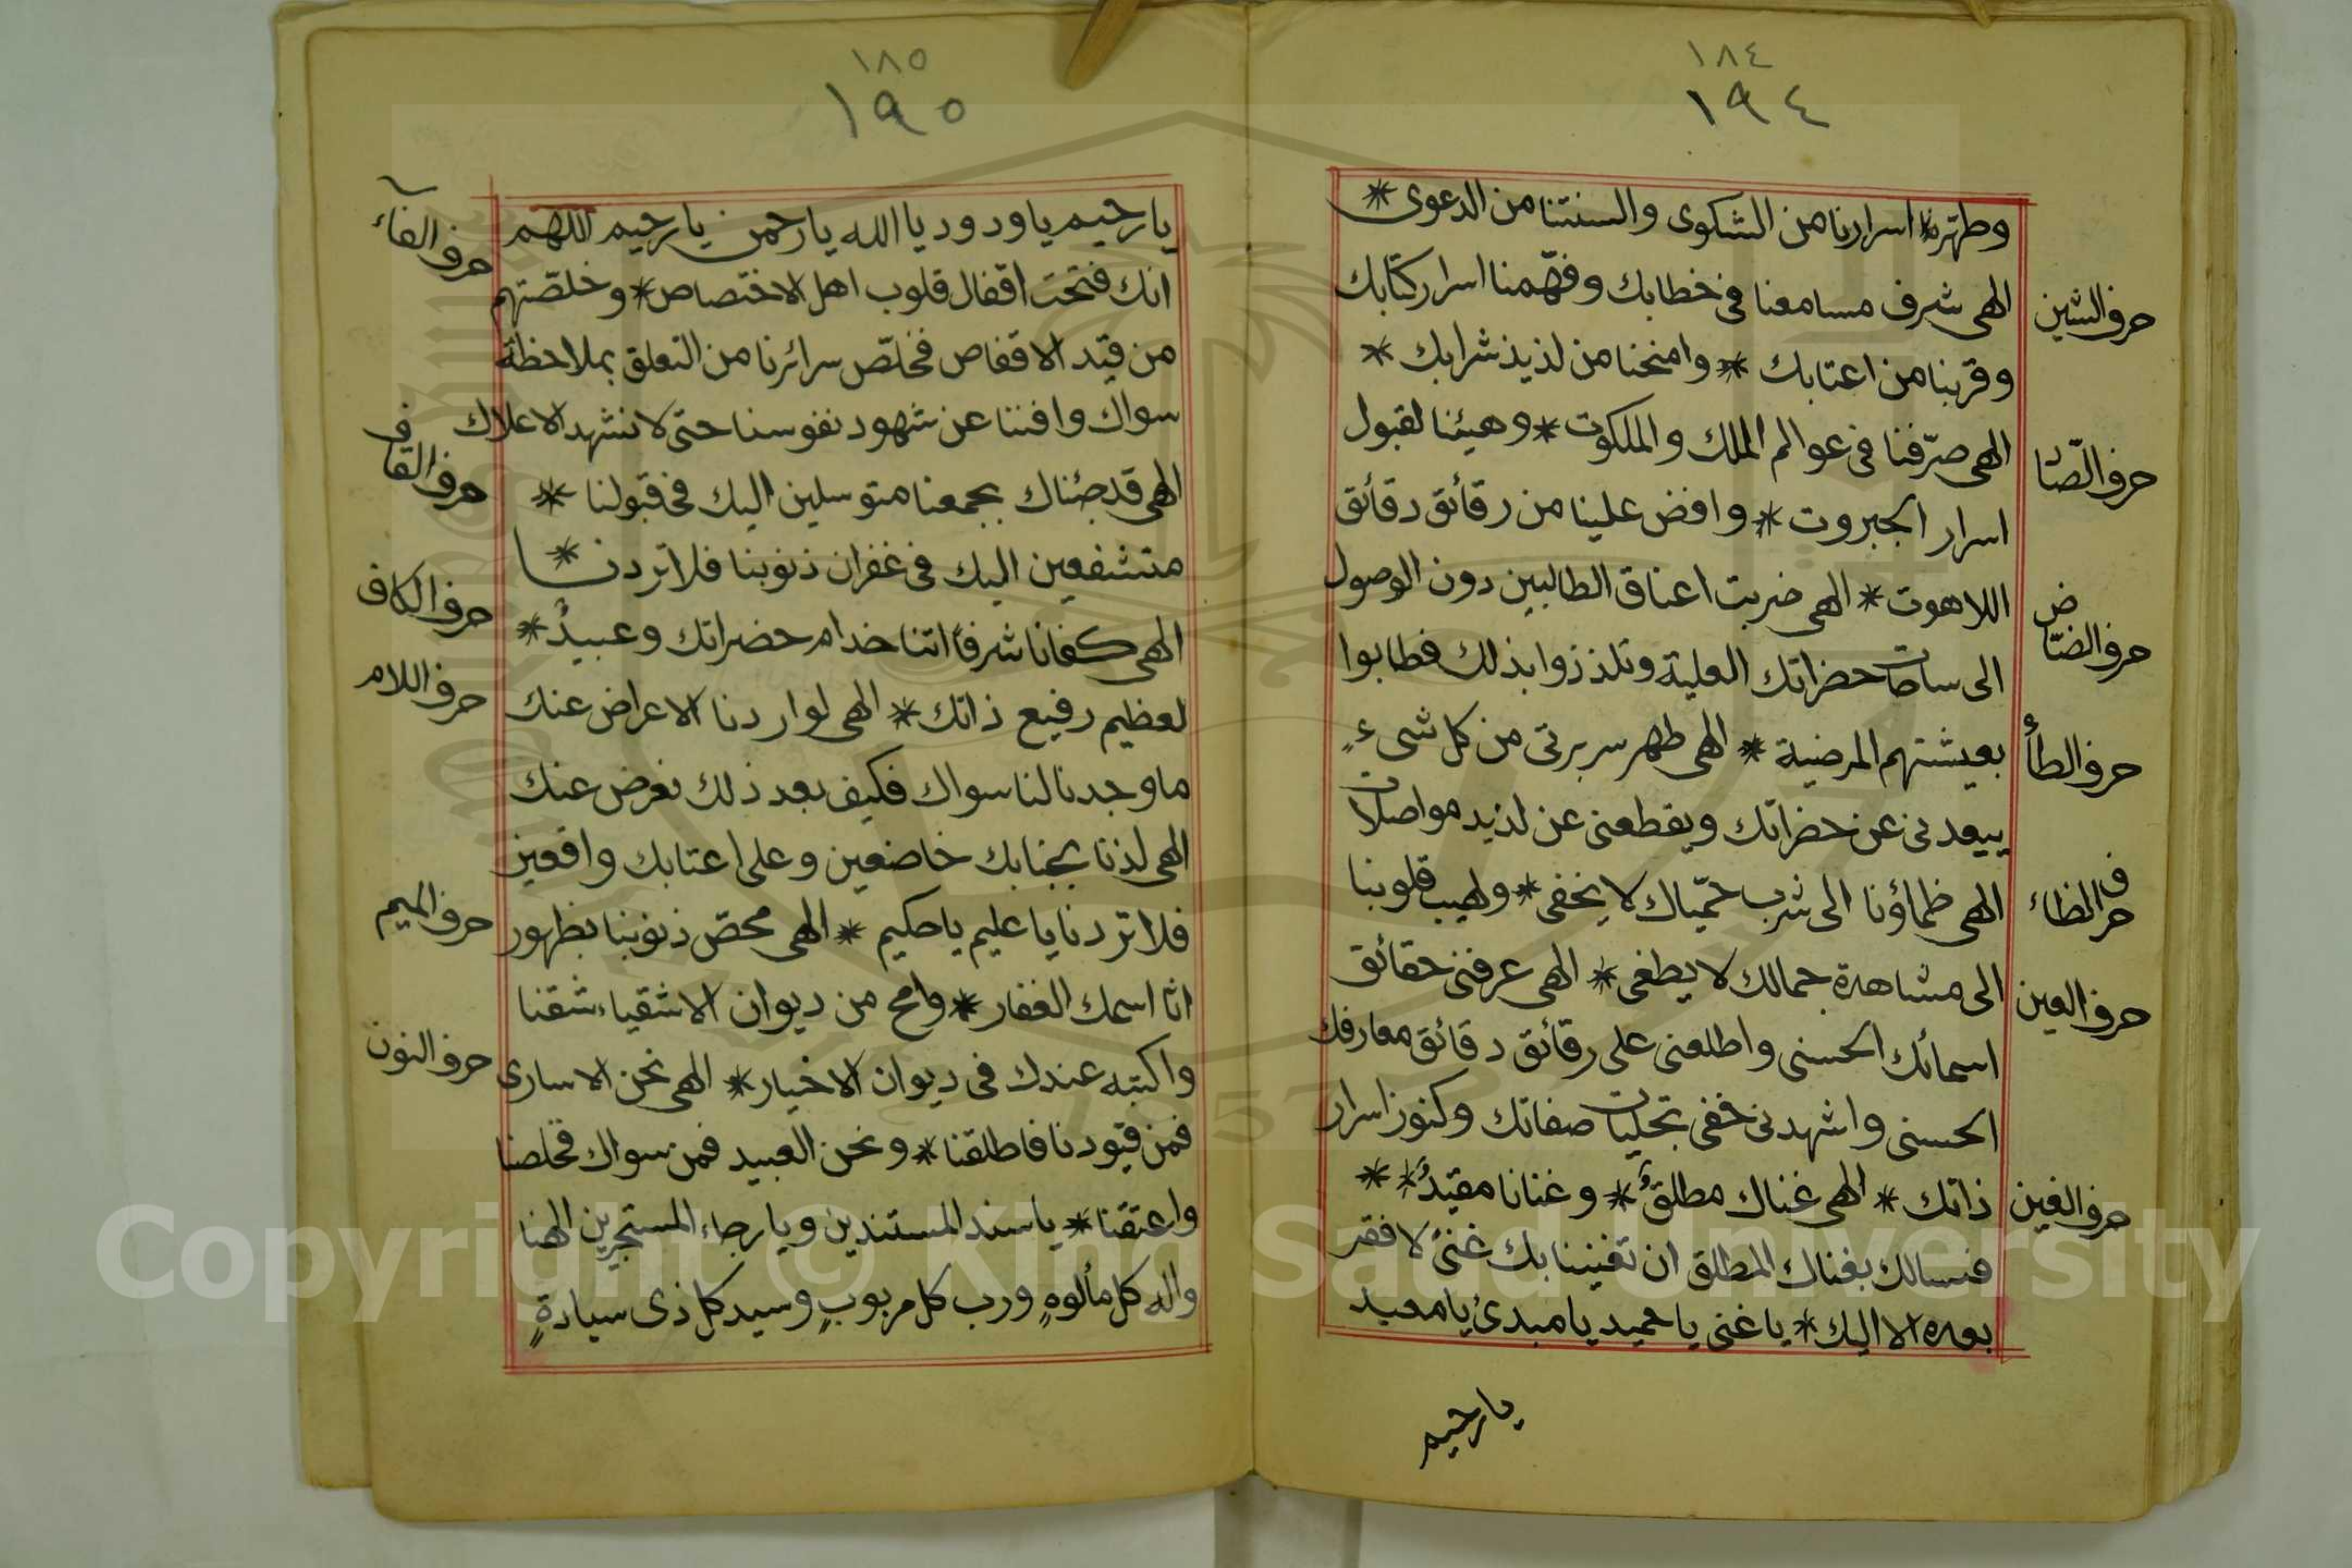 ١٨٤
١٩٤
وطهر اسرارنا من الشكوى والسنتنا من الدعوى *
حرف الشين
الهى شرف مسامعنا فى خطابك وفهّمنا اسرار كتابك
وقربنا من اعتابك * وامنحنا من لذيذ شرابك *
حرف الصّاد
الهى صرّفنا فى عوالم الملك والملكوت * وهيئنا لقبول
اسرار الجبروت * وافض علينا من رقائق دقائق
حرف الضّاض
اللاهوت * الهى ضربت اعناق الطالبين دون الوصول
الى ساحات حضراتك العلية وتلذذوا بذلك فطابوا
حرف الطأ
بعيشتهم المرضية * الهى طهر سريرتى من كل شىءٍ
يبعدنى عن حضراتك ويقطعنى عن لذيد مواصلات
حرف الظاء
الهى ظماؤنا الى شرب حميّاك لا يخفى * ولهيب قلوبنا
الى مشاهدة جمالك لا يطفى * الهى عرفنى حقائق
حرف العين
اسمائك الحسنى واطلعنى على رقائق دقائق معارفك
الحسنى واشهدنى خفى تجليات صفاتك وكنوز اسرار
حرف الغين
ذاتك * الهى غناك مطلقٌ * وغنانا مقيدٌ *
فنسالك بغناك المطلق ان تغنينا بك غنىً لا فقر
بعده الا اليك * يا غنى يا حميد يا مبدئ يا معيد
يا رحيم
١٨٥
١٩٥
حرف الفاء
يا رحيم يا ودود يا الله يا رحمن يا رحيم اللهم
انك فتحت اقفال قلوب اهل الاختصاص * وخلصّتهم
من قيد الاقفاص فخلّص سرائرنا من التعلق بملاحظة
سواك وافننا عن شهود نفوسنا حتى لا نشهد الا علاك
حرف القاف
الهى قد جئناك بجمعنا متوسلين اليك فى قبولنا *
متشفعين اليك فى غفران ذنوبنا فلا تردنا *
حرف الكاف
الهى كفانا شرفاً اننا خدام حضراتك وعبيدٌ *
حرف اللام
لعظيم رفيع ذاتك * الهى لو اردنا الاعراض عنك
ما وجدنا لنا سواك فكيف بعد ذلك نعرض عنك
الهى لذنا بجنابك خاضعين وعلى اعتابك واقعين
حرف الميم
فلا تردنا يا عليم يا حكيم * الهى محصّ ذنوبنا بظهور
اثا اسمك الغفار * وامح من ديوان الاشقياء شقنا
حرف النون
واكتبه عندك فى ديوان الاخيار * الهى نحن الاسارى
فمن قيودنا فاطلقنا * ونحن العبيد فمن سواك فخلصنا
واعتقنا * يا سند المستندين ويا رجاء المستجيرين الهنا
واله كل مألوهٍ ورب كل مربوبٍ وسيد كل ذى سيادةٍ
Copyright © King Saud University
1957